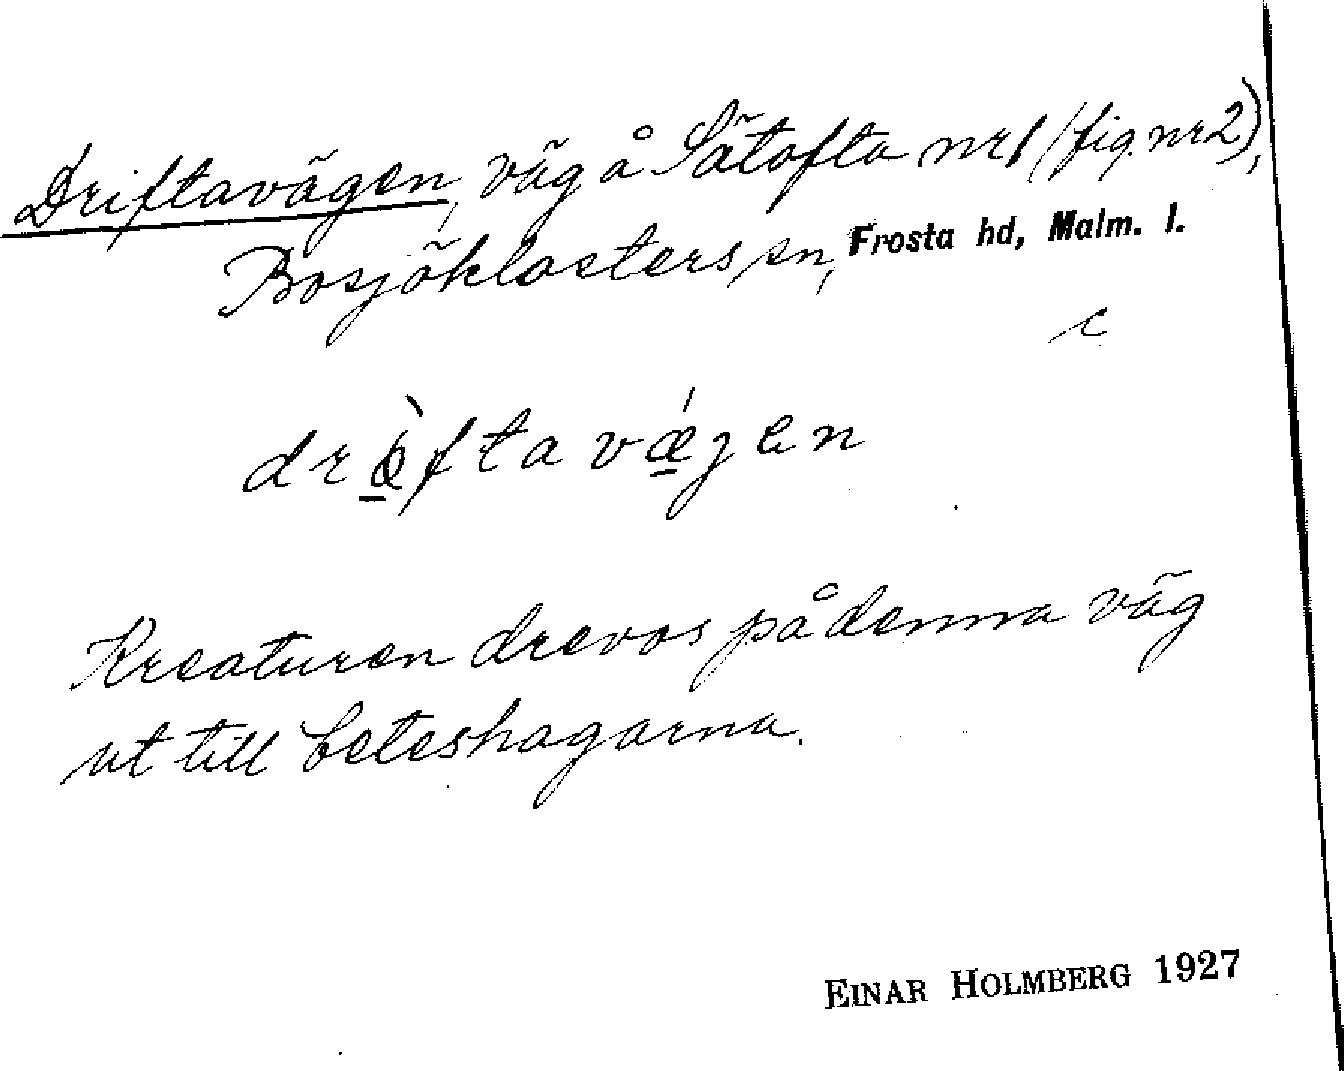 Driftavägen, väg å Sätofta nr 1 (fig. nr 2),
Bosjöklosters sn, Frosta hd, Malm. l.
c
vægen
Kreaturen drevos på denna väg
ut till beteshagarna.
EINAR HOLMBERG 1927